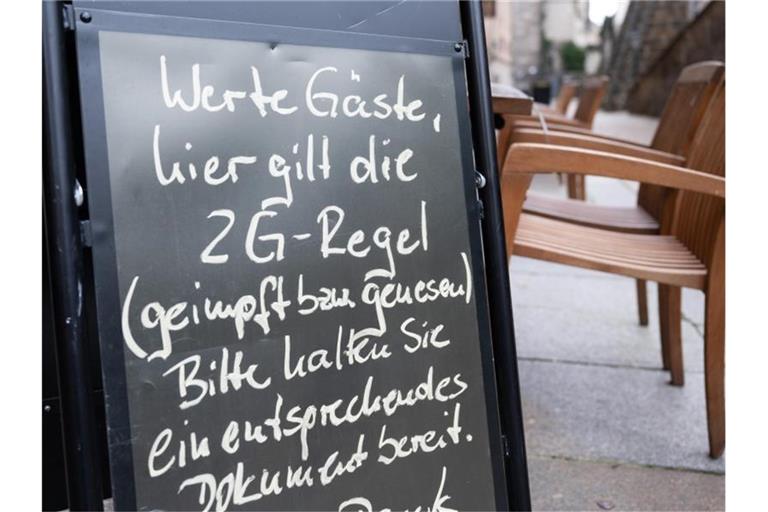 Werte Gäste,
hier gilt die
2G-Regel
(geimpft bzw. genesen)
Bitte halten Sie
ein entsprechendes
Dokument bereit.